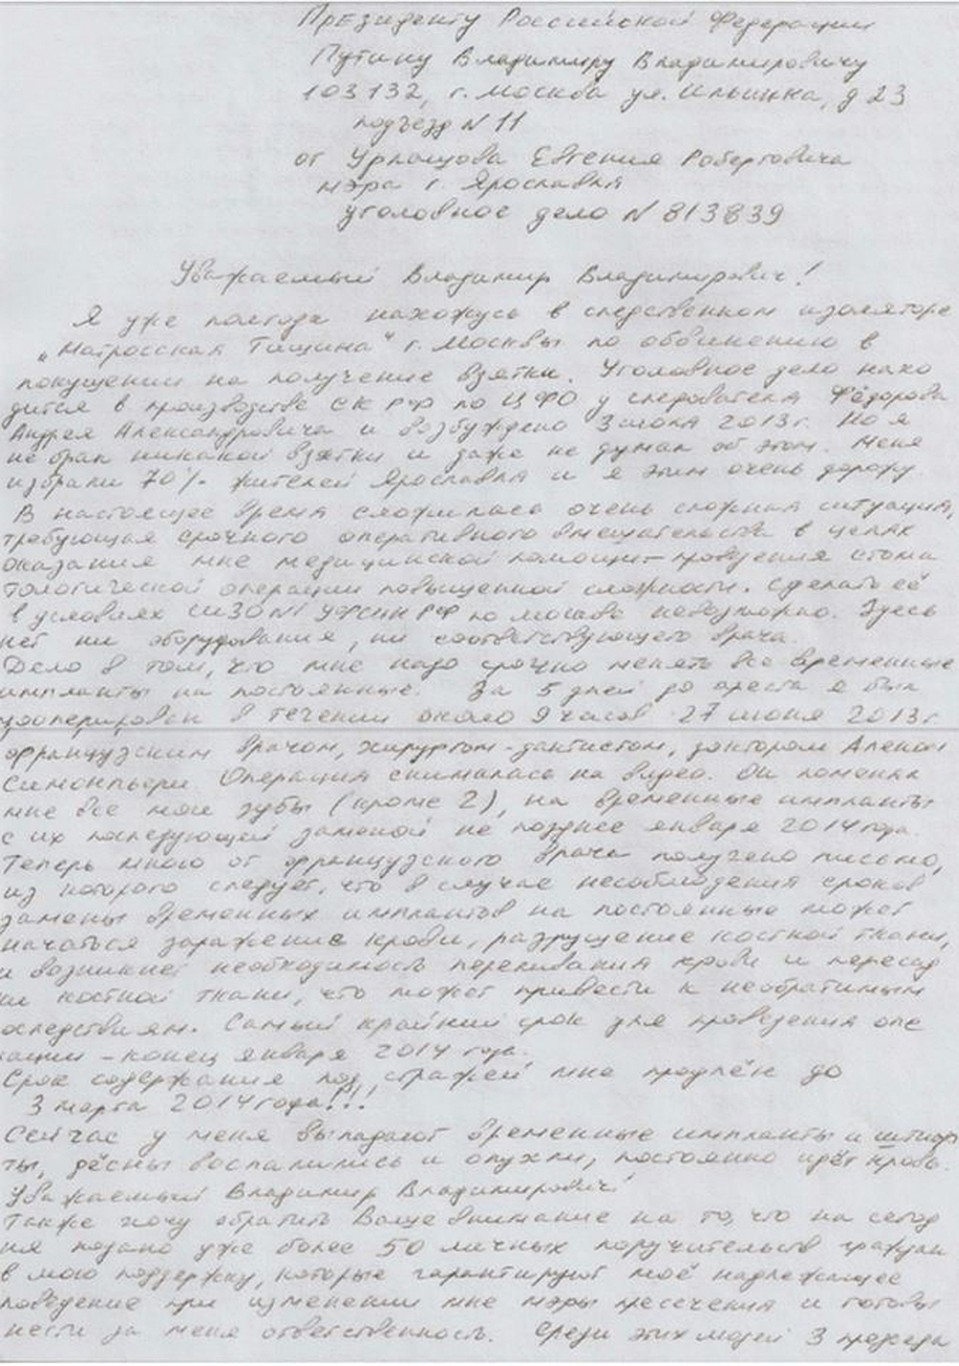 Президенту Российской Федерации
Путину Владимиру Владимировичу
103132, г. Москва ул. Ильинка, д 23
подъезд N 11
от Урлашова Евгения Робертовича
мэра г. Ярославля
уголовное дело N 813839
Уважаемый Владимир Владимирович!
Я уже полгода нахожусь в следственном изоляторе
„Матросская Тишина“ г. Москвы по обвинению в
покушении на получение взятки. Уголовное дело нахо
дится в производстве СК РФ по ЦФО у следователя Фёдорова
Андрея Александровича и возбуждено 3 июля 2013 г. Но я
не брал никакой взятки и даже не думал об этом. Меня
избрали 70% жителей Ярославля и я этим очень дорожу.
В настоящее время сложилась очень сложная ситуация,
требующая срочного оперативного вмешательства в целях
оказания мне медицинской помощи – проведения стома
тологической операции повышенной сложности. Сделать её
в условиях СИЗО N1 УФСИН РФ по Москве невозможно. Здесь
нет ни оборудования, ни соответствующего врача.
Дело в том, что мне надо срочно менять все временные
импланты на постоянные. За 5 дней до ареста я был
прооперирован в течении около 9 часов 27 июня 2013 г
французским врачом, хирургом-дантистом, доктором Аленом
Симонпьери. Операция снималась на видео. Он поменял
мне все мои зубы (кроме 2), на временные импланты
с их последующей заменой не позднее января 2014 года.
Теперь мною от французского врача получено письмо,
из которого следует, что в случае несоблюдения сроков
замены временных имплантов на постоянные может
начаться заражение крови, разрушение костной ткани,
и возникнет необходимость переливания крови и пересад
ки костной ткани, что может привести к необратимым
последствиям. Самый крайний срок для проведения опе
рации – конец января 2014 года.
Срок содержания под стражей мне продлён до
3 марта 2014 года!!!
Сейчас у меня выпадают временные импланты и штиф
ты, дёсны воспалились и опухли, постоянно идёт кровь.
Уважаемый Владимир Владимирович!
Также хочу обратить Ваше внимание на то, что на сегод
ня подано уже более 50 личных поручительств граждан
в мою поддержку, которые гарантируют моё надлежащее
поведение при изменении мне меры пресечения и готовы
нести за меня ответственность. Среди этих людей 3